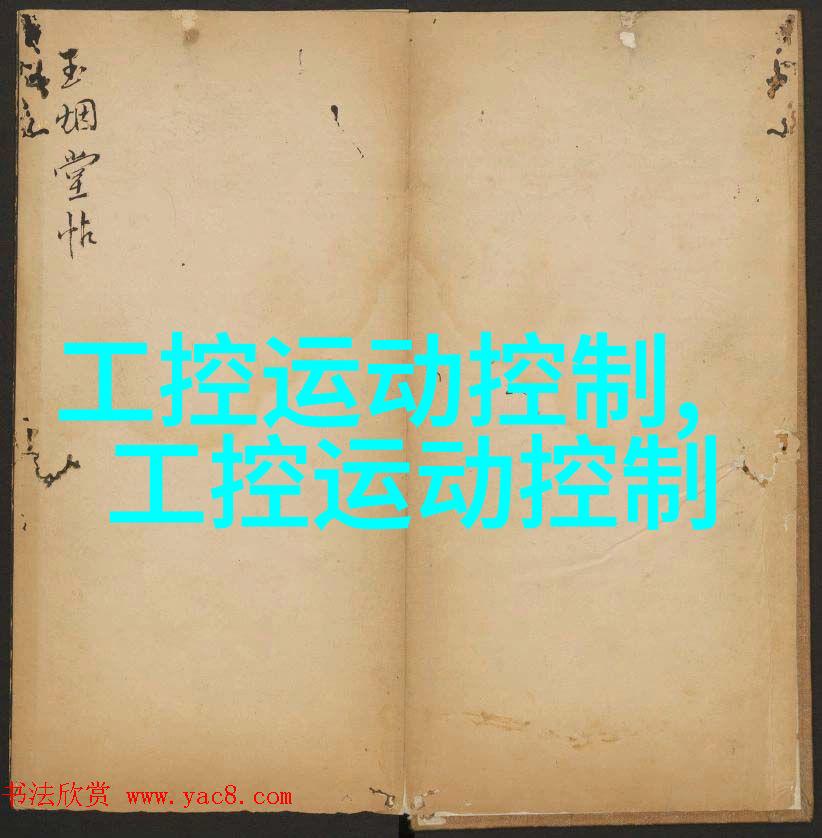 玉烟堂帖
工控运动控制,
工控运动控制
书法欣赏 www.yac8.com